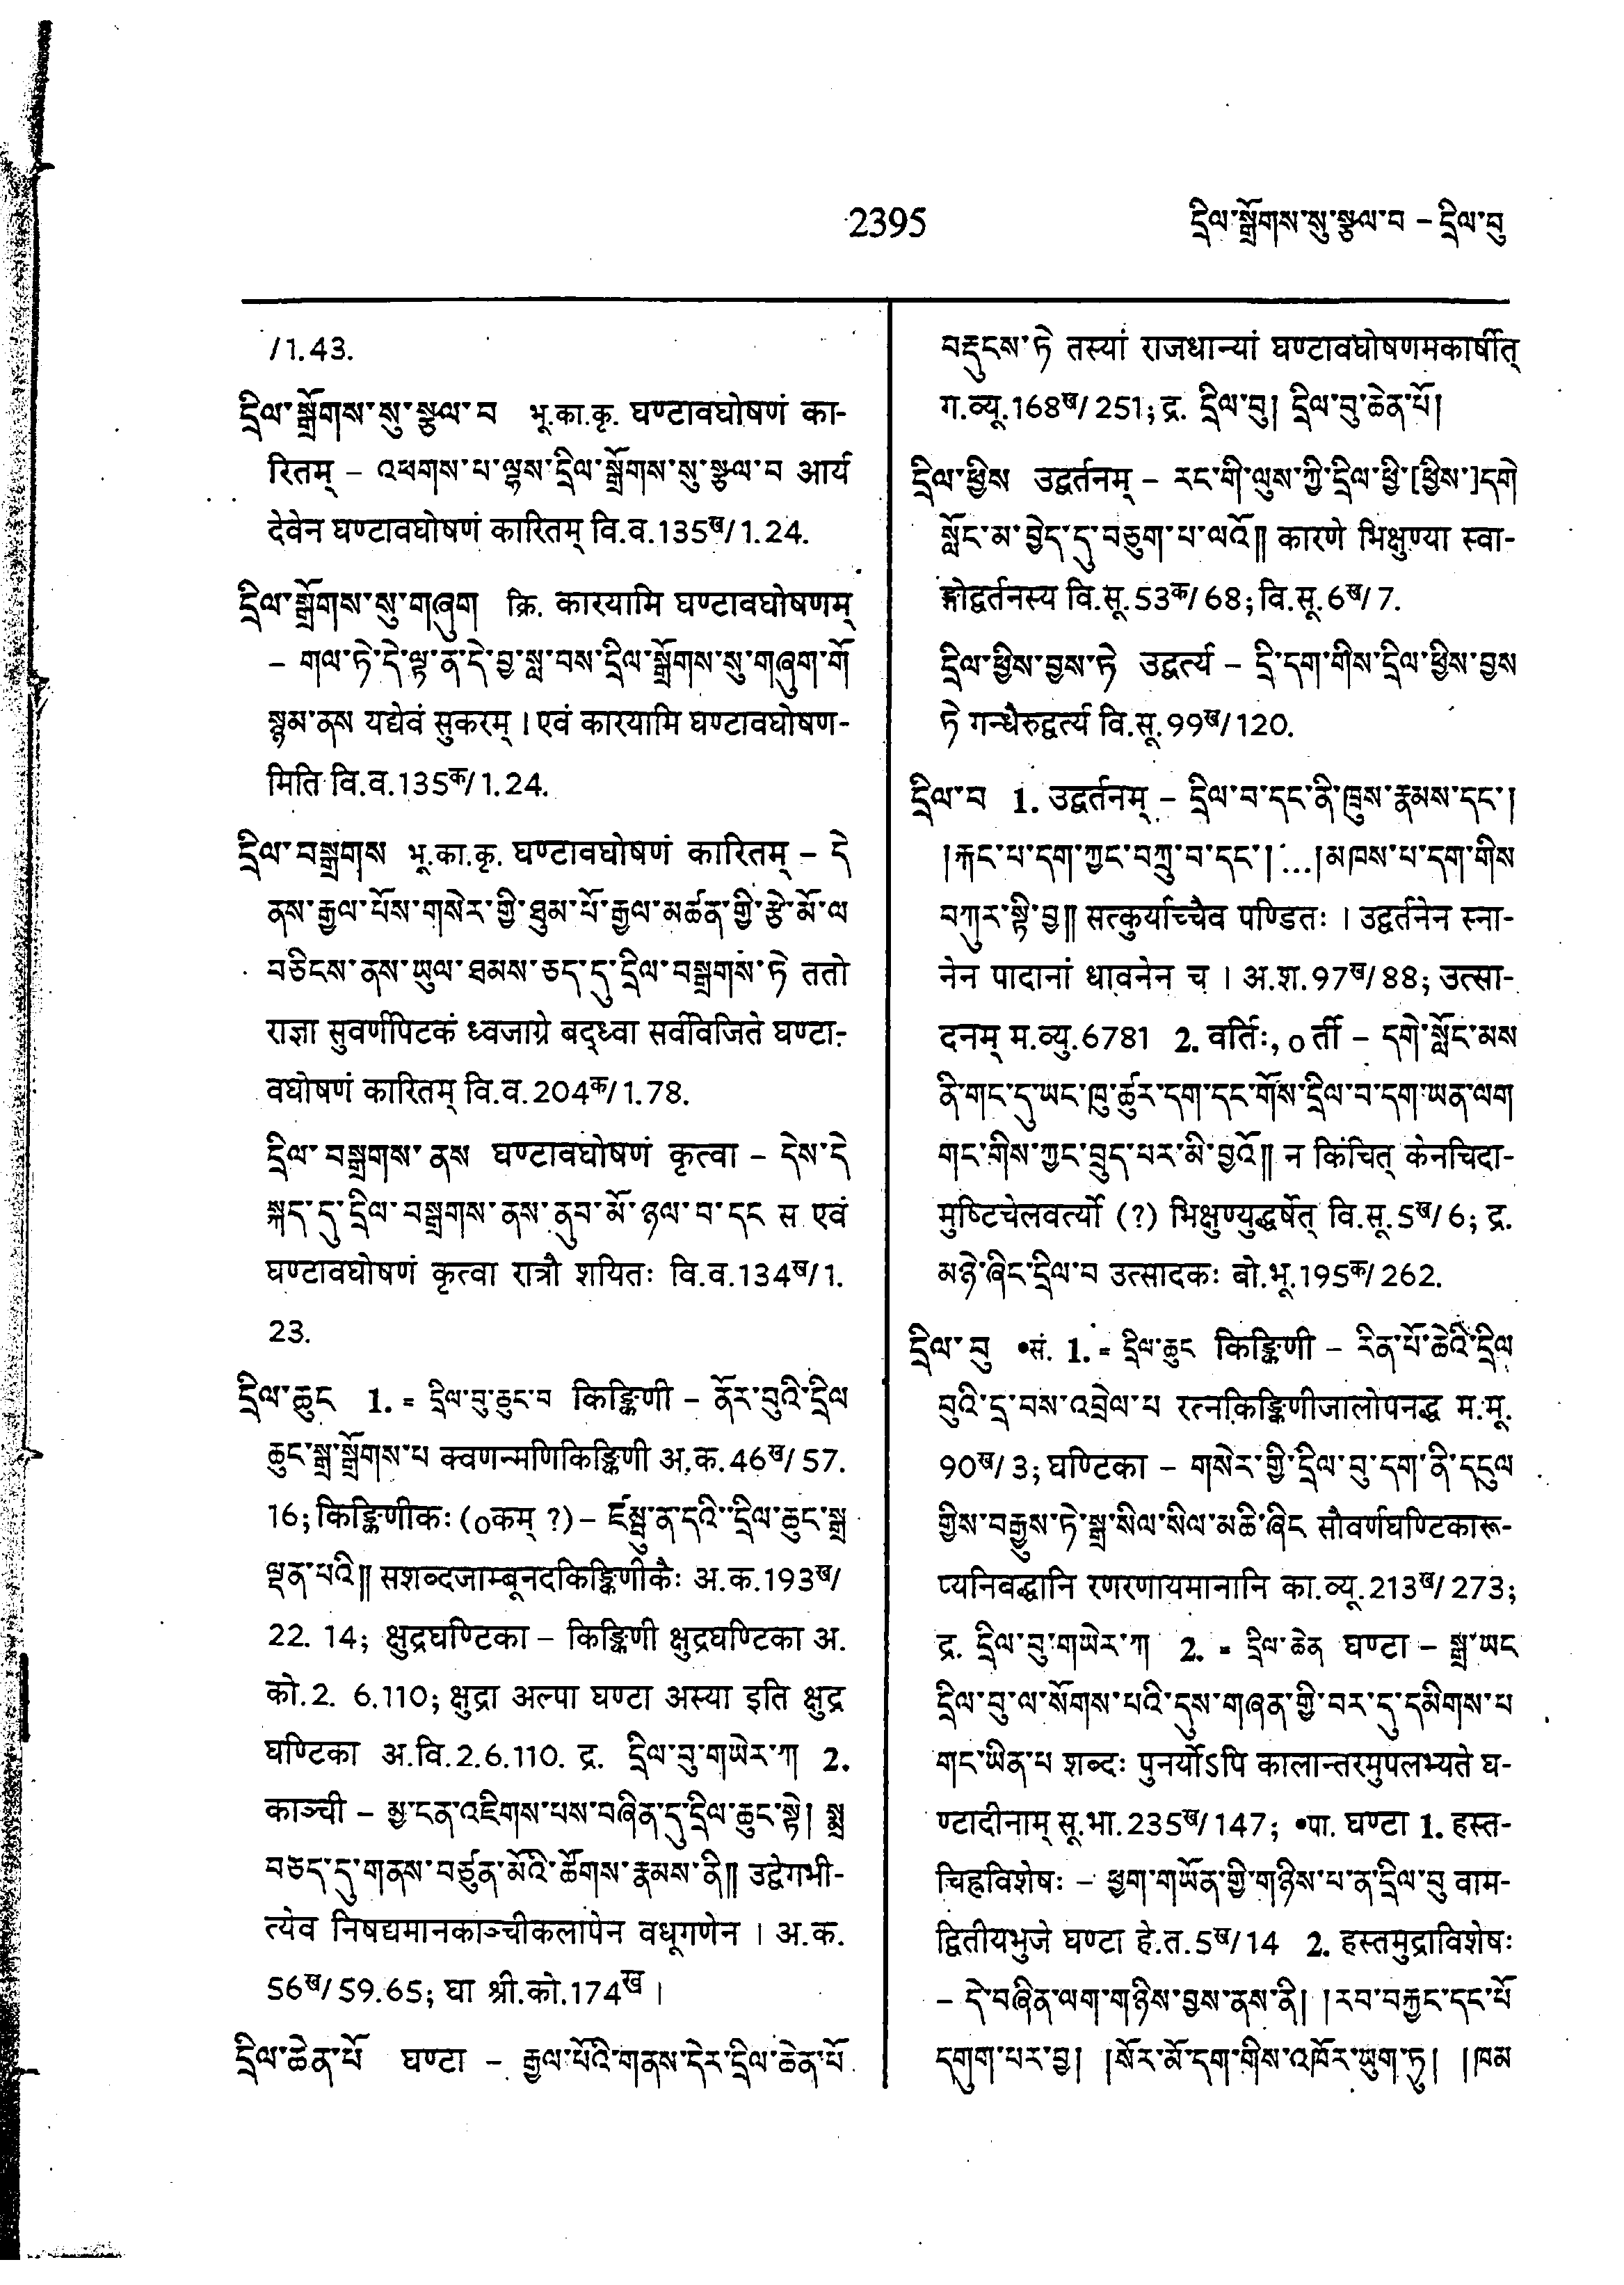 2395
དྲིལ་སྒྲོགས་སུ་སྩལ་བ – དྲིལ་བུ
/1.43.
དྲིལ་སྒྲོགས་སུ་སྩལ་བ भू.का.कृ. घण्टावघोषणं का-
रितम् – འཕགས་པ་ལྷས་དྲིལ་སྒྲོགས་སུ་སྩལ་བ आर्य
देवेन घण्टावघोषणं कारितम् वि.व.135ख/1.24.
དྲིལ་སྒྲོགས་སུ་གཞུག क्रि. कारयामि घण्टावघोषणम्
– གལ་ཏེ་དེ་ལྟ་ན་དེ་བྱ་སླ་བས་དྲིལ་སྒྲོགས་སུ་གཞུག་གོ
སྙམ་ནས यद्येवं सुकरम् । एवं कारयामि घण्टावघोषण-
मिति वि.व.135क/1.24.
དྲིལ་བསྒྲགས भू.का.कृ. घण्टावघोषणं कारितम् – དེ
ནས་རྒྱལ་པོས་གསེར་གྱི་ཐུམ་པོ་རྒྱལ་མཚན་གྱི་རྩེ་མོ་ལ
བཅིངས་ནས་ཡུལ་ཐམས་ཅད་དུ་དྲིལ་བསྒྲགས་ཏེ ततो
राज्ञा सुवर्णपिटकं ध्वजाग्रे बद्ध्वा सर्वविजिते घण्टा-
वघोषणं कारितम् वि.व.204क/1.78.
དྲིལ་བསྒྲགས་ནས घण्टावघोषणं कृत्वा – དེས་དེ
སྐད་དུ་དྲིལ་བསྒྲགས་ནས་ནུབ་མོ་ཉལ་བ་དང स एवं
घण्टावघोषणं कृत्वा रात्रौ शयितः वि.व.134ख/1.
23.
དྲིལ་ཆུང 1. = དྲིལ་བུ་ཆུང་བ किङ्किणी – ནོར་བུའི་དྲིལ
ཆུང་སྒྲ་སྒྲོགས་པ क्वणन्मणिकिङ्किणी अ.क.46ख/57.
16; किङ्किणीकः (०कम् ?) – ཛཾསྦུ་ན་དའི་དྲིལ་ཆུང་སྒྲ
ལྡན་པའི༎ सशब्दजाम्बूनदकिङ्किणीकैः अ.क.193ख/
22. 14; क्षुद्रघण्टिका – किङ्किणी क्षुद्रघण्टिका अ.
को.2. 6.110; क्षुद्रा अल्पा घण्टा अस्या इति क्षुद्र
घण्टिका अ.वि.2.6.110. द्र. དྲིལ་བུ་གཡེར་ཀ། 2.
काञ्ची – མྱ་ངན་འཇིགས་པས་བཞིན་དུ་དྲིལ་ཆུང་སྟེ། སྨྲ
བཅད་དུ་གནས་བཙུན་མོའི་ཚོགས་རྣམས་ནི༎ उद्वेगभी-
त्येव निषद्यमानकाञ्चीकलापेन वधूगणेन । अ.क.
56ख/59.65; घा श्री.को.174ख ।
དྲིལ་ཆེན་པོ घण्टा – རྒྱལ་པོའི་གནས་དེར་དྲིལ་ཆེན་པོ
བརྡུངས་ཏེ तस्यां राजधान्यां घण्टावघोषणमकार्षीत्
ग.व्यू.168ख/251; द्र. དྲིལ་བུ། དྲིལ་བུ་ཆེན་པོ།
དྲིལ་ཕྱིས उद्वर्तनम् – རང་གི་ལུས་ཀྱི་དྲིལ་ཕྱི་[ཕྱིས་]དགེ
སློང་མ་བྱེད་དུ་བཅུག་པ་ལའོ༎ कारणे भिक्षुण्या स्वा-
ङ्गोद्वर्तनस्य वि.सू.53क/68; वि.सू.6ख/7.
དྲིལ་ཕྱིས་བྱས་ཏེ उद्वर्त्य – དྲི་དག་གིས་དྲིལ་ཕྱིས་བྱས
ཏེ गन्धैरुद्वर्त्य वि.सू.99ख/120.
དྲིལ་བ 1. उद्वर्तनम् – དྲིལ་བ་དང་ནི་ཁྲུས་རྣམས་དང་།
།རྐང་པ་དག་ཀྱང་བཀྲུ་བ་དང་། ...།མཁས་པ་དག་གིས
བཀུར་སྟི་བྱ༎ सत्कुर्याच्चैव पण्डितः । उद्वर्तनेन स्ना-
नेन पादानां धावनेन च । अ.श.97ख/88; उत्सा-
दनम् म.व्यु.6781 2. वर्तिः, ०र्ती – དགེ་སློང་མས
ནི་གང་དུ་ཡང་ཁུ་ཚུར་དག་དང་གོས་དྲིལ་བ་དག་ཡན་ལག
གང་གིས་ཀྱང་བྲུད་པར་མི་བྱའོ༎ न किंचित् केनचिदा-
मुष्टिचेलवर्त्यो (?) भिक्षुण्युद्घर्षेत् वि.सू.5ख/6; द्र.
མཉེ་ཞིང་དྲིལ་བ उत्सादकः बो.भू.195क/262.
དྲིལ་བུ •सं. 1. = དྲིལ་ཆུང किङ्किणी – རིན་པོ་ཆེའི་དྲིལ
བུའི་དྲ་བས་འབྲེལ་པ रत्नकिङ्किणीजालोपनद्ध म.मू.
90ख/3; घण्टिका – གསེར་གྱི་དྲིལ་བུ་དག་ནི་དངུལ
གྱིས་བརྒྱུས་ཏེ་སྒྲ་སིལ་སིལ་མཆི་ཞིང सौवर्णघण्टिकारू-
प्यनिबद्धानि रणरणायमानानि का.व्यू.213ख/273;
द्र. དྲིལ་བུ་གཡེར་ཀ། 2. = དྲིལ་ཆེན घण्टा – སྒྲ་ཡང
དྲིལ་བུ་ལ་སོགས་པའི་དུས་གཞན་གྱི་བར་དུ་དམིགས་པ
གང་ཡིན་པ शब्दः पुनर्योऽपि कालान्तरमुपलभ्यते घ-
ण्टादीनाम् सू.भा.235ख/147; •पा. घण्टा 1. हस्त-
चिह्नविशेषः – ཕྱག་གཡོན་གྱི་གཉིས་པ་ན་དྲིལ་བུ वाम-
द्वितीयभुजे घण्टा हे.त.5ख/14 2. हस्तमुद्राविशेषः
– དེ་བཞིན་ལག་གཉིས་བྱས་ནས་ནི། །རབ་བརྐྱང་དང་པོ
དགུག་པར་བྱ། །སོར་མོ་དག་གིས་འཁོར་ཡུག་ཏུ། །ཁམ